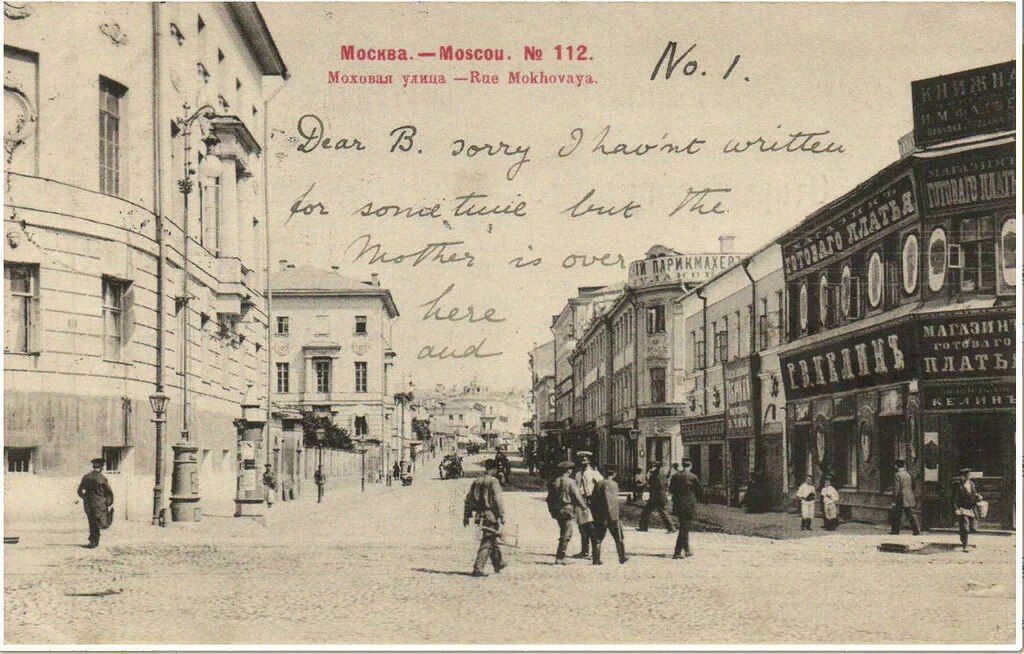 Москва.—Moscou. № 112.
Моховая улица —Rue Mokhovaya.
No. 1.
Dear B. sorry I hav'nt written
for some time but the
Mother is over
here
and
ПАРИКМАХЕРЪ
КНИЖНА
МАГАЗИНЪ
ГОТОВАГО ПЛАТЬЯ
ГОТОВАГО ПЛАТЬЯ
КЕЛИНЪ
МАГАЗИНЪ
ГОТОВАГО
ПЛАТЬЯ
КЕЛИНЪ